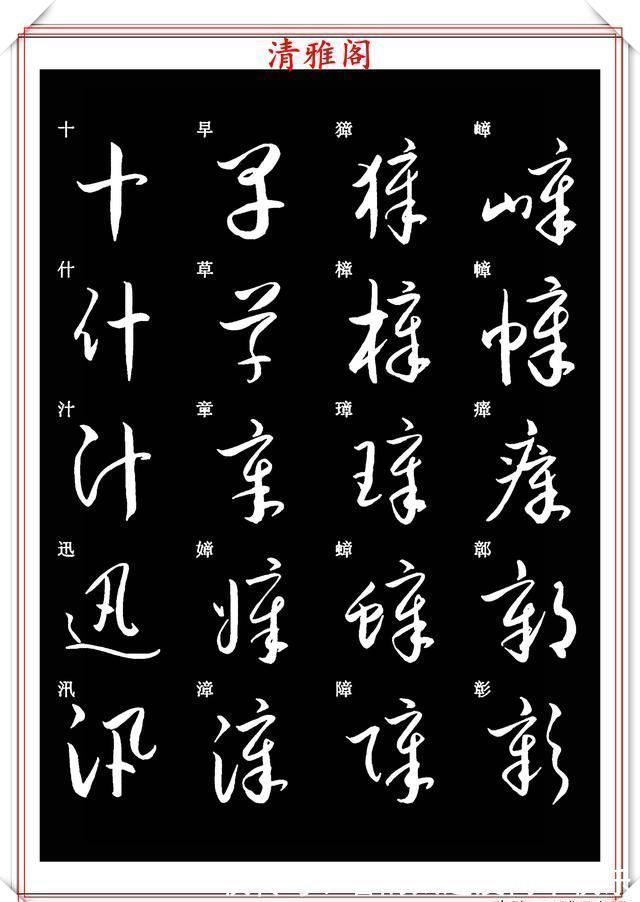 清雅阁
十 早 獐 嶂
十 早 獐 嶂
什 草 樟 幛
什 草 樟 幛
汁 章 璋 瘴
汁 章 璋 瘴
迅 嫜 蟑 鄣
迅 嫜 蟑 鄣
汛 漳 障 彰
汛 漳 障 彰